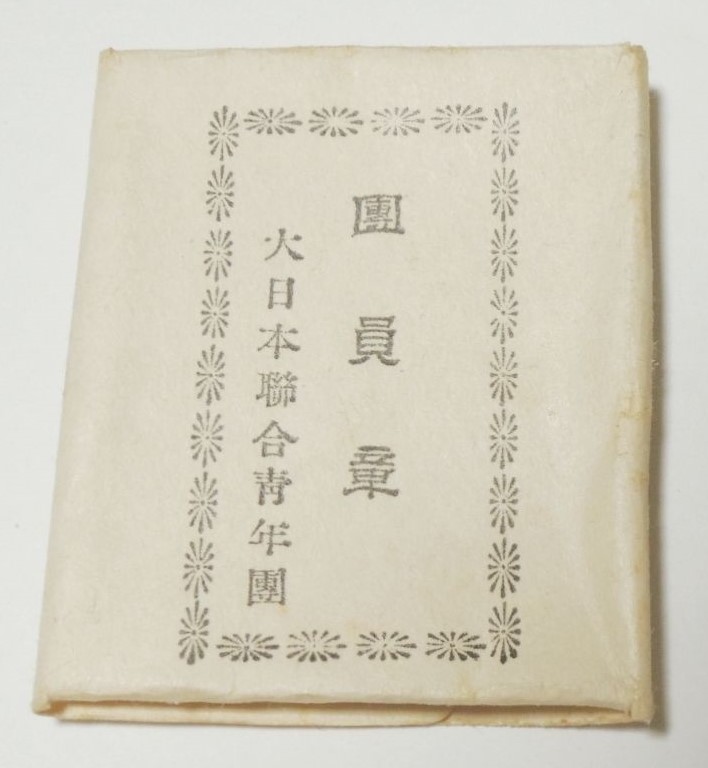 團員章
大日本聯合青年團